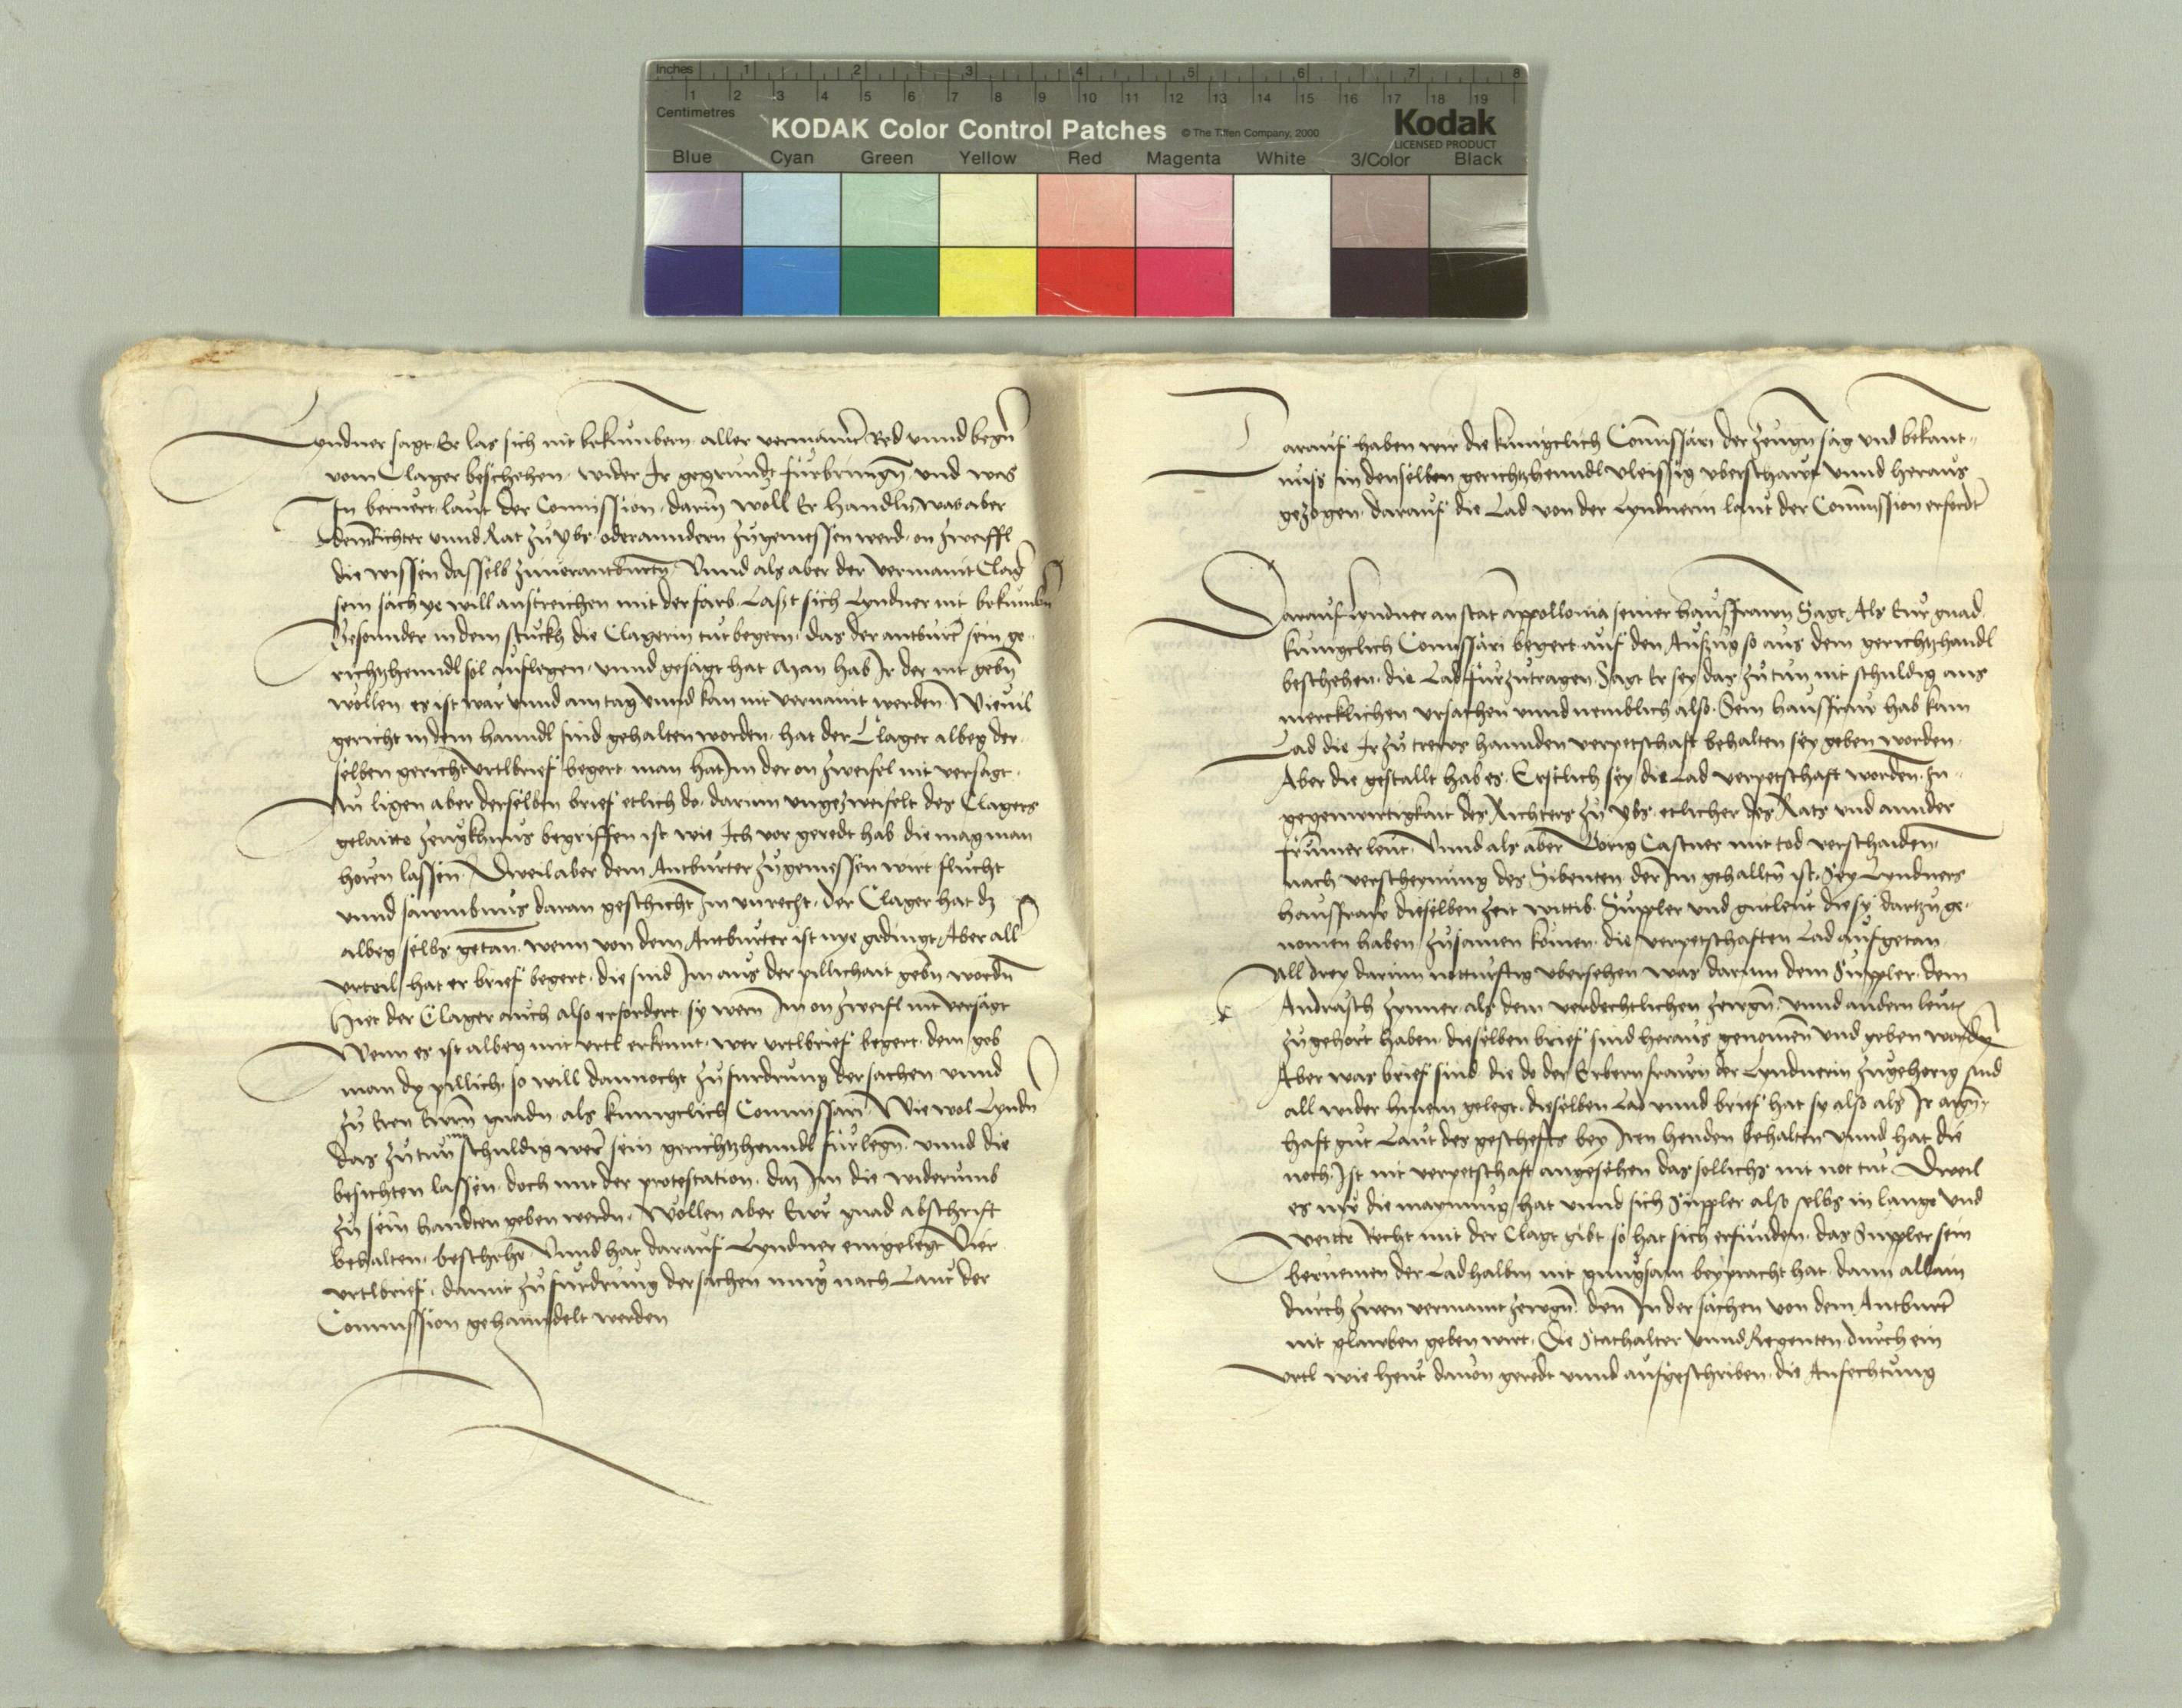 Inches 1 2 3 4 5 6 7 8
1 2 3 4 5 6 7 8 9 10 11 12 13 14 15 16 17 18 19
Centimetres
KODAK Color Control Patches © The Tiffen Company, 2000 Kodak
LICENSED PRODUCT
Blue Cyan Green Yellow Red Magenta White 3/Color Black
Lyndner sagt Er las sich nit bekumbern aller vermaint Red vnnd begern
vom Clager beschehen wider Ir gegrundt furbringn vnd was
In beruert laut der Comission darin well Er handln was aber
dem Richter vnnd Rat zu Ybs oder anndern zugemessen werd on zweiffl
die wissen dasselb zuuerantburtn Vnnd als aber der vermaint Clag
sein sach ye will anstreichen mit der farb Laßt sich Lyndner nit bekumbn
Besonnder in dem stuckh die Clagerin tut begern das der antburter sein ge-
richtzhenndl sol auflegen vnnd gesagt hat Man hab Ir der nit gebn
wollen es ist war vnnd am tag vnnd kan nit vernaint werden Wieuil
gericht in dem hanndl sind gehalten worden hat der Clager albeg der
selben gericht vrtlbrief begert man hat Im der on zweifel nit versagt
Nu ligen aber derselben brief etlich do darum vngezweifelt des Clagers
gelaitte zeugkhnus begriffen ist wie Ich vor geredt hab die mag man
horen lassen Dweil aber dem Antburter zugemessen wirt flucht
vnnd sawmbnus daran geschicht Im vnrecht der Clager hat dz
albeg selbs getan wenn von dem Antburter ist nye gedingt Aber all
vrteil hat er brief begert die sind Im aus der pillichait gebn wordn
Hiet der Clager auch also erfordert sy wern Im on zweifl nit versagt
Wenn es ist albeg mit vrtl erkennt wer vrtlbrief begert dem geb
man dy pillich so will dannocht zu furdrung der sachen vnnd
zu Eren Ewrn gnadn als kunigclich Commissari Wie wol Lyndn
das zutun nit schuldig wer sein gerichtzhenndl furlegn vnnd die
besichten lassen doch mit der protestation daz Im die widerumb
zu sein handten geben werdn Wollen aber Ewr gnad abschrift
behalten beschehe Vnnd hat darauf Lyndner eingelegt Vier
vrtlbrief damit zu furdrung der sachen mug nach Laut der
Commission gehanndelt werden
Darauf haben wir die kunigclich Commissari der zeugn sag vnd bekant-
nuss in denselben gerichtzhenndl vleissig vberschawt vnnd heraus
gezogen darauf die Lad von der Lyndnerin laut der Commission erfordt
Darauf Lyndner anstat Appollonia seiner hausfrawn Sagt Als Eur gnad
kunigclich Comissari begert auf den Auszug so aus dem gerichtzhandl
beschehen die Lad furzutragen Sagt Er sey das zutun nit schuldig aus
mercklichen vrsachen vnnd nemblich also Sein hausfraw hab kain
Lad die Ir zu trews hannden verpetschaft behalten sey geben worden
Aber die gestallt hab es Erstlich sey die Lad verpetschaft worden In
gegenwirtigkait des Richters zu Ybs etlicher des Rats vnd annder
frumer leut Vnnd als aber Jorig Castner mit tod verschaiden
nach verscheynung des Sibenten der Im gehalltn ist Sey Lyndners
hausfraw dieselben zeit wittib Suppler vnd gutleut die sy dartzu ge-
nomen haben zusamen komen die verpetschaften Lad aufgetan
all drey darinn notturftig vbersehen was darinn dem Suppler dem
Andrasch zynner als dem verdechtlichen zewgn vnnd andern leuten
zugehort haben dieselben brief sind heraus genomen vnd geben wordn
Aber was brief sind die do der Erbern frawn der Lyndnerin zugehorig sind
all wider hinein gelegt dieselben Lad vnnd brief hat sy also als Ir aign
haft gut Laut des geschefts bey Iren henden behalten vnnd hat die
noch Ist nit verpetschaft angesehen das sollichs nit not tut Dweil
es nur die maynung hat vnnd sich Suppler also selbs in lange vnd
weitte Recht mit der Clage gibt so hat sich erfunden das Suppler sein
beruemen der Lad halben nit gnugsam beypracht hat dann allain
durch zwen vermaint zewgn den In der sachen von dem Antburter
nit glauben geben wirt Die Stathalter vnnd Regenten durch ein
vrtl wie heut dauon geredt vnnd aufgeschriben die Anfechtung